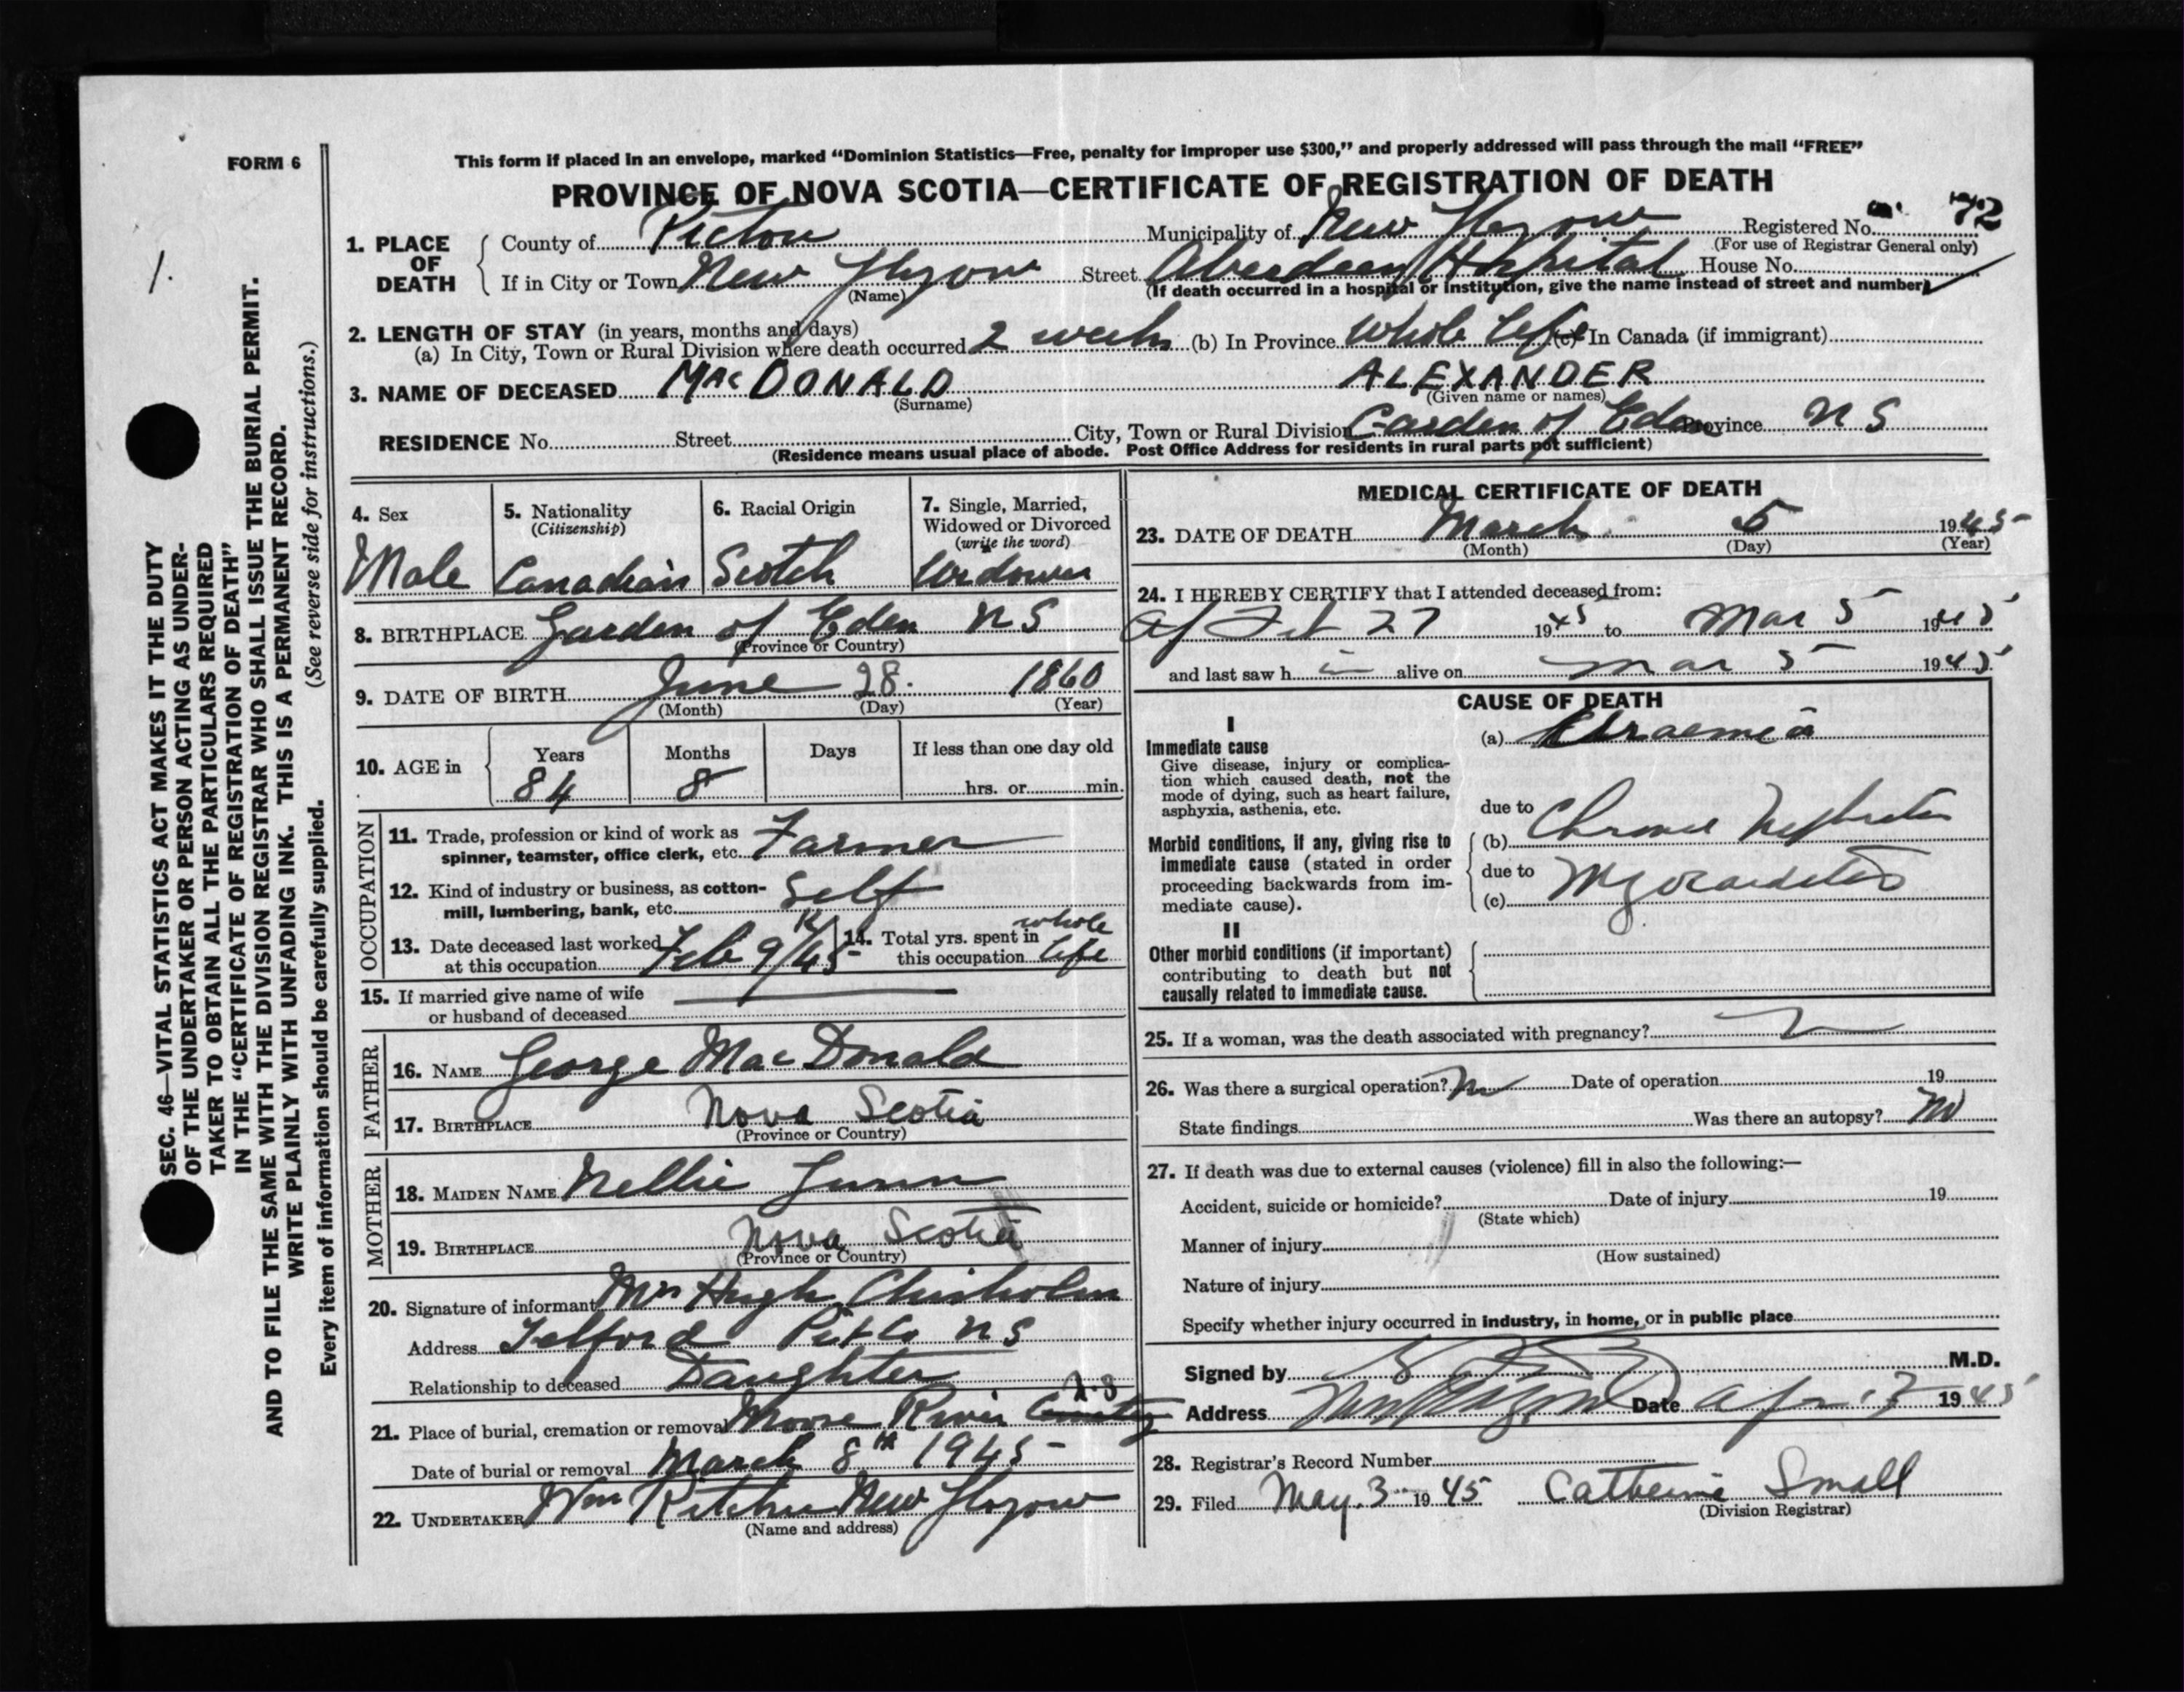 FORM 6
This form if placed in an envelope, marked “Dominion Statistics—Free, penalty for improper use $300,” and properly addressed will pass through the mail “FREE”
PROVINCE OF NOVA SCOTIA—CERTIFICATE OF REGISTRATION OF DEATH
1.
SEC. 46—VITAL STATISTICS ACT MAKES IT THE DUTY
OF THE UNDERTAKER OR PERSON ACTING AS UNDER-
TAKER TO OBTAIN ALL THE PARTICULARS REQUIRED
IN THE “CERTIFICATE OF REGISTRATION OF DEATH”
AND TO FILE THE SAME WITH THE DIVISION REGISTRAR WHO SHALL ISSUE THE BURIAL PERMIT.
WRITE PLAINLY WITH UNFADING INK. THIS IS A PERMANENT RECORD.
Every item of information should be carefully supplied. (See reverse side for instructions.)
1. PLACE OF DEATH
County of Pictou Municipality of New Glasgow Registered No. 72
(For use of Registrar General only)
If in City or Town New Glasgow Street Aberdeen Hospital House No.
(Name) (If death occurred in a hospital or institution, give the name instead of street and number)
2. LENGTH OF STAY (in years, months and days)
(a) In City, Town or Rural Division where death occurred 2 weeks (b) In Province Whole Life (c) In Canada (if immigrant)
3. NAME OF DECEASED MacDONALD ALEXANDER
(Surname) (Given name or names)
RESIDENCE No. Street City, Town or Rural Division Garden of Eden Province N S
(Residence means usual place of abode. Post Office Address for residents in rural parts not sufficient)
4. Sex
Male
5. Nationality
(Citizenship)
Canadian
6. Racial Origin
Scotch
7. Single, Married,
Widowed or Divorced
(write the word)
Widower
8. BIRTHPLACE Garden of Eden N S
(Province or Country)
9. DATE OF BIRTH June 28. 1860
(Month) (Day) (Year)
10. AGE in
Years Months Days If less than one day old
84 8 hrs. or min.
OCCUPATION
11. Trade, profession or kind of work as
spinner, teamster, office clerk, etc. Farmer
12. Kind of industry or business, as cotton-
mill, lumbering, bank, etc. Self
13. Date deceased last worked
at this occupation Feb 9/45
14. Total yrs. spent in
this occupation whole life
15. If married give name of wife
or husband of deceased
FATHER
16. NAME George MacDonald
17. BIRTHPLACE Nova Scotia
(Province or Country)
MOTHER
18. MAIDEN NAME Nellie Gunn
19. BIRTHPLACE Nova Scotia
(Province or Country)
20. Signature of informant Mrs Hugh Chisholm
Address Telford Pict Co N S
Relationship to deceased Daughter
21. Place of burial, cremation or removal Moose River Cemetery N.S
Date of burial or removal March 8th 1945
22. UNDERTAKER Wm Ritchie New Glasgow
(Name and address)
MEDICAL CERTIFICATE OF DEATH
23. DATE OF DEATH March 5 1945
(Month) (Day) (Year)
24. I HEREBY CERTIFY that I attended deceased from:
Feb 27 1945 to Mar 5 1945
and last saw h alive on Mar 5 1945
CAUSE OF DEATH
I
Immediate cause
Give disease, injury or complica-
tion which caused death, not the
mode of dying, such as heart failure,
asphyxia, asthenia, etc.
(a) Uraemia
due to
Morbid conditions, if any, giving rise to
immediate cause (stated in order
proceeding backwards from im-
mediate cause).
(b) Chronic Nephritis
due to
(c) Myocarditis
II
Other morbid conditions (if important)
contributing to death but not
causally related to immediate cause.
25. If a woman, was the death associated with pregnancy?
26. Was there a surgical operation? no Date of operation 19
State findings Was there an autopsy? no
27. If death was due to external causes (violence) fill in also the following:—
Accident, suicide or homicide? Date of injury 19
(State which)
Manner of injury
(How sustained)
Nature of injury
Specify whether injury occurred in industry, in home, or in public place
Signed by M.D.
Address New Glasgow Date Apr 1945
28. Registrar's Record Number
29. Filed May 3 1945 Catherine Small
(Division Registrar)